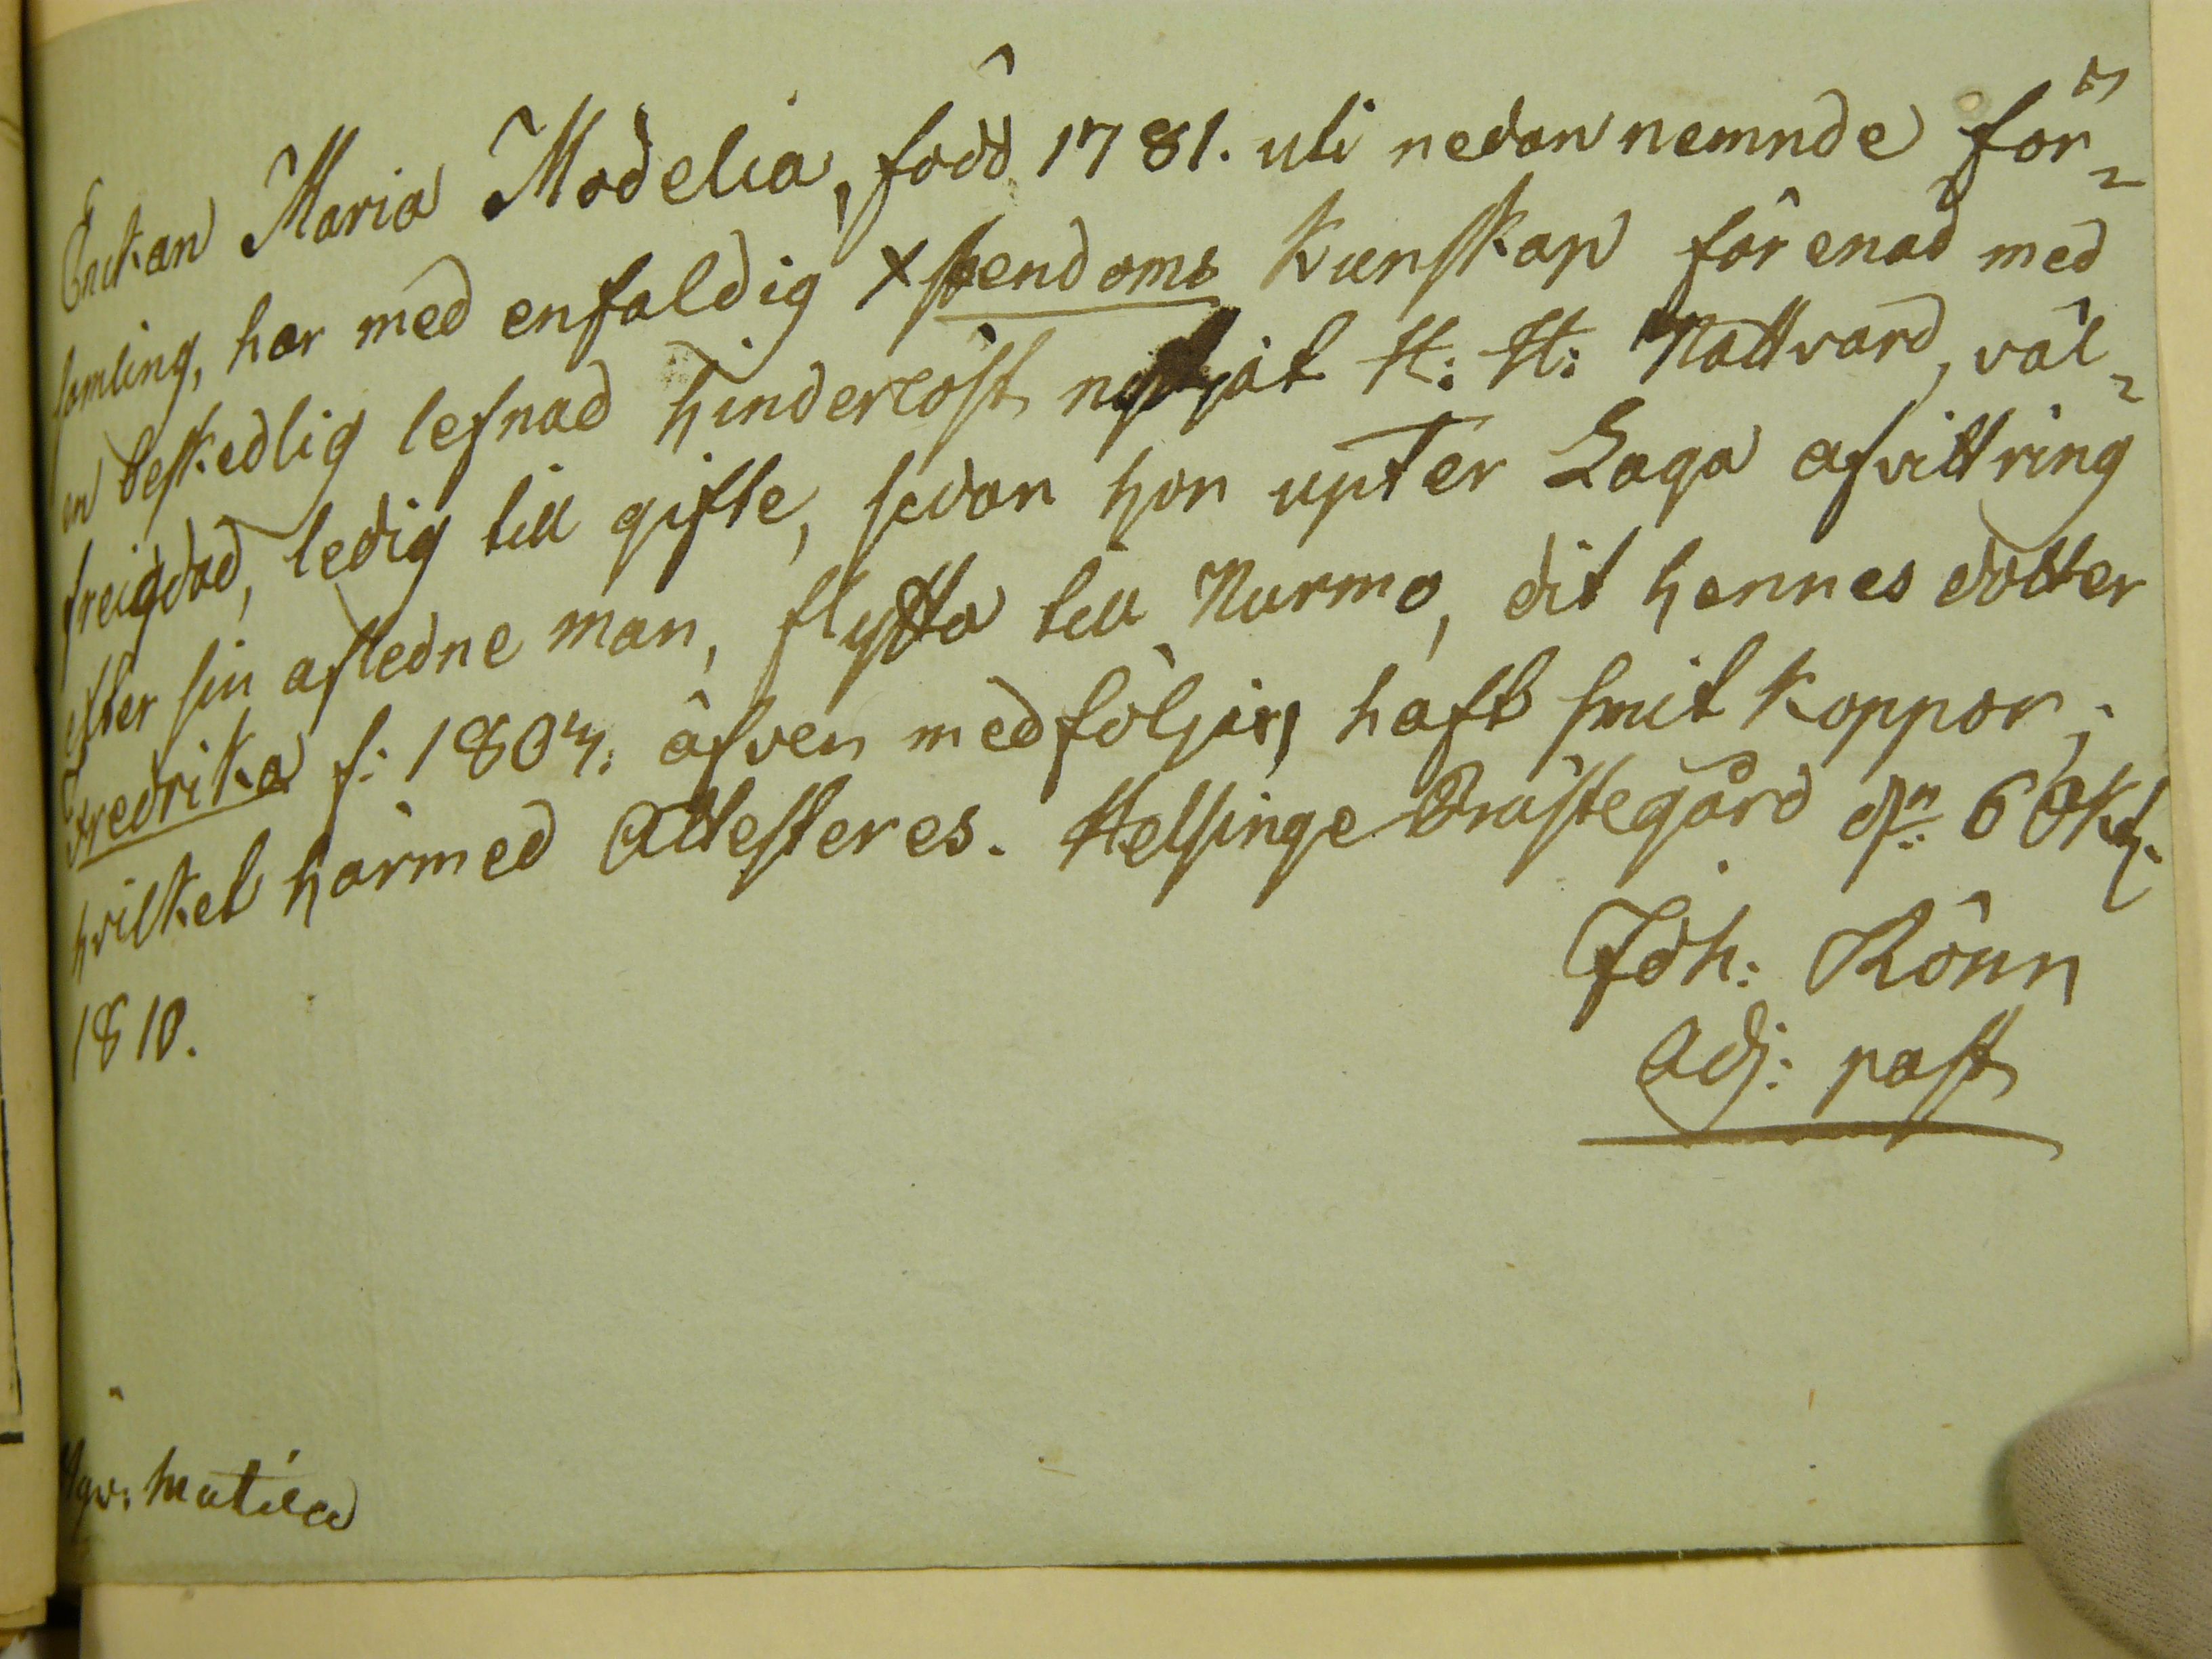 Enkan Maria Modelia, född 1781. uti nedannemnde för-
samling, har med enfaldig Xstendoms Kunskap förenad med
en beskedlig lefnad hinderlöst nyttjat H: H: Nattvard, väl-
freigdad, ledig till gifte, sedan hon upter Laga afvittring
efter sin afledne man, flytta till Nurmo, dit hennes dotter
Fredrika f: 1804. äfven medföljer, haft smitkoppor;
hvilket härmed Attesteres. Helsinge Prästegård dn: 6 Okt.
1810.
Joh: Rönn
Adj: past